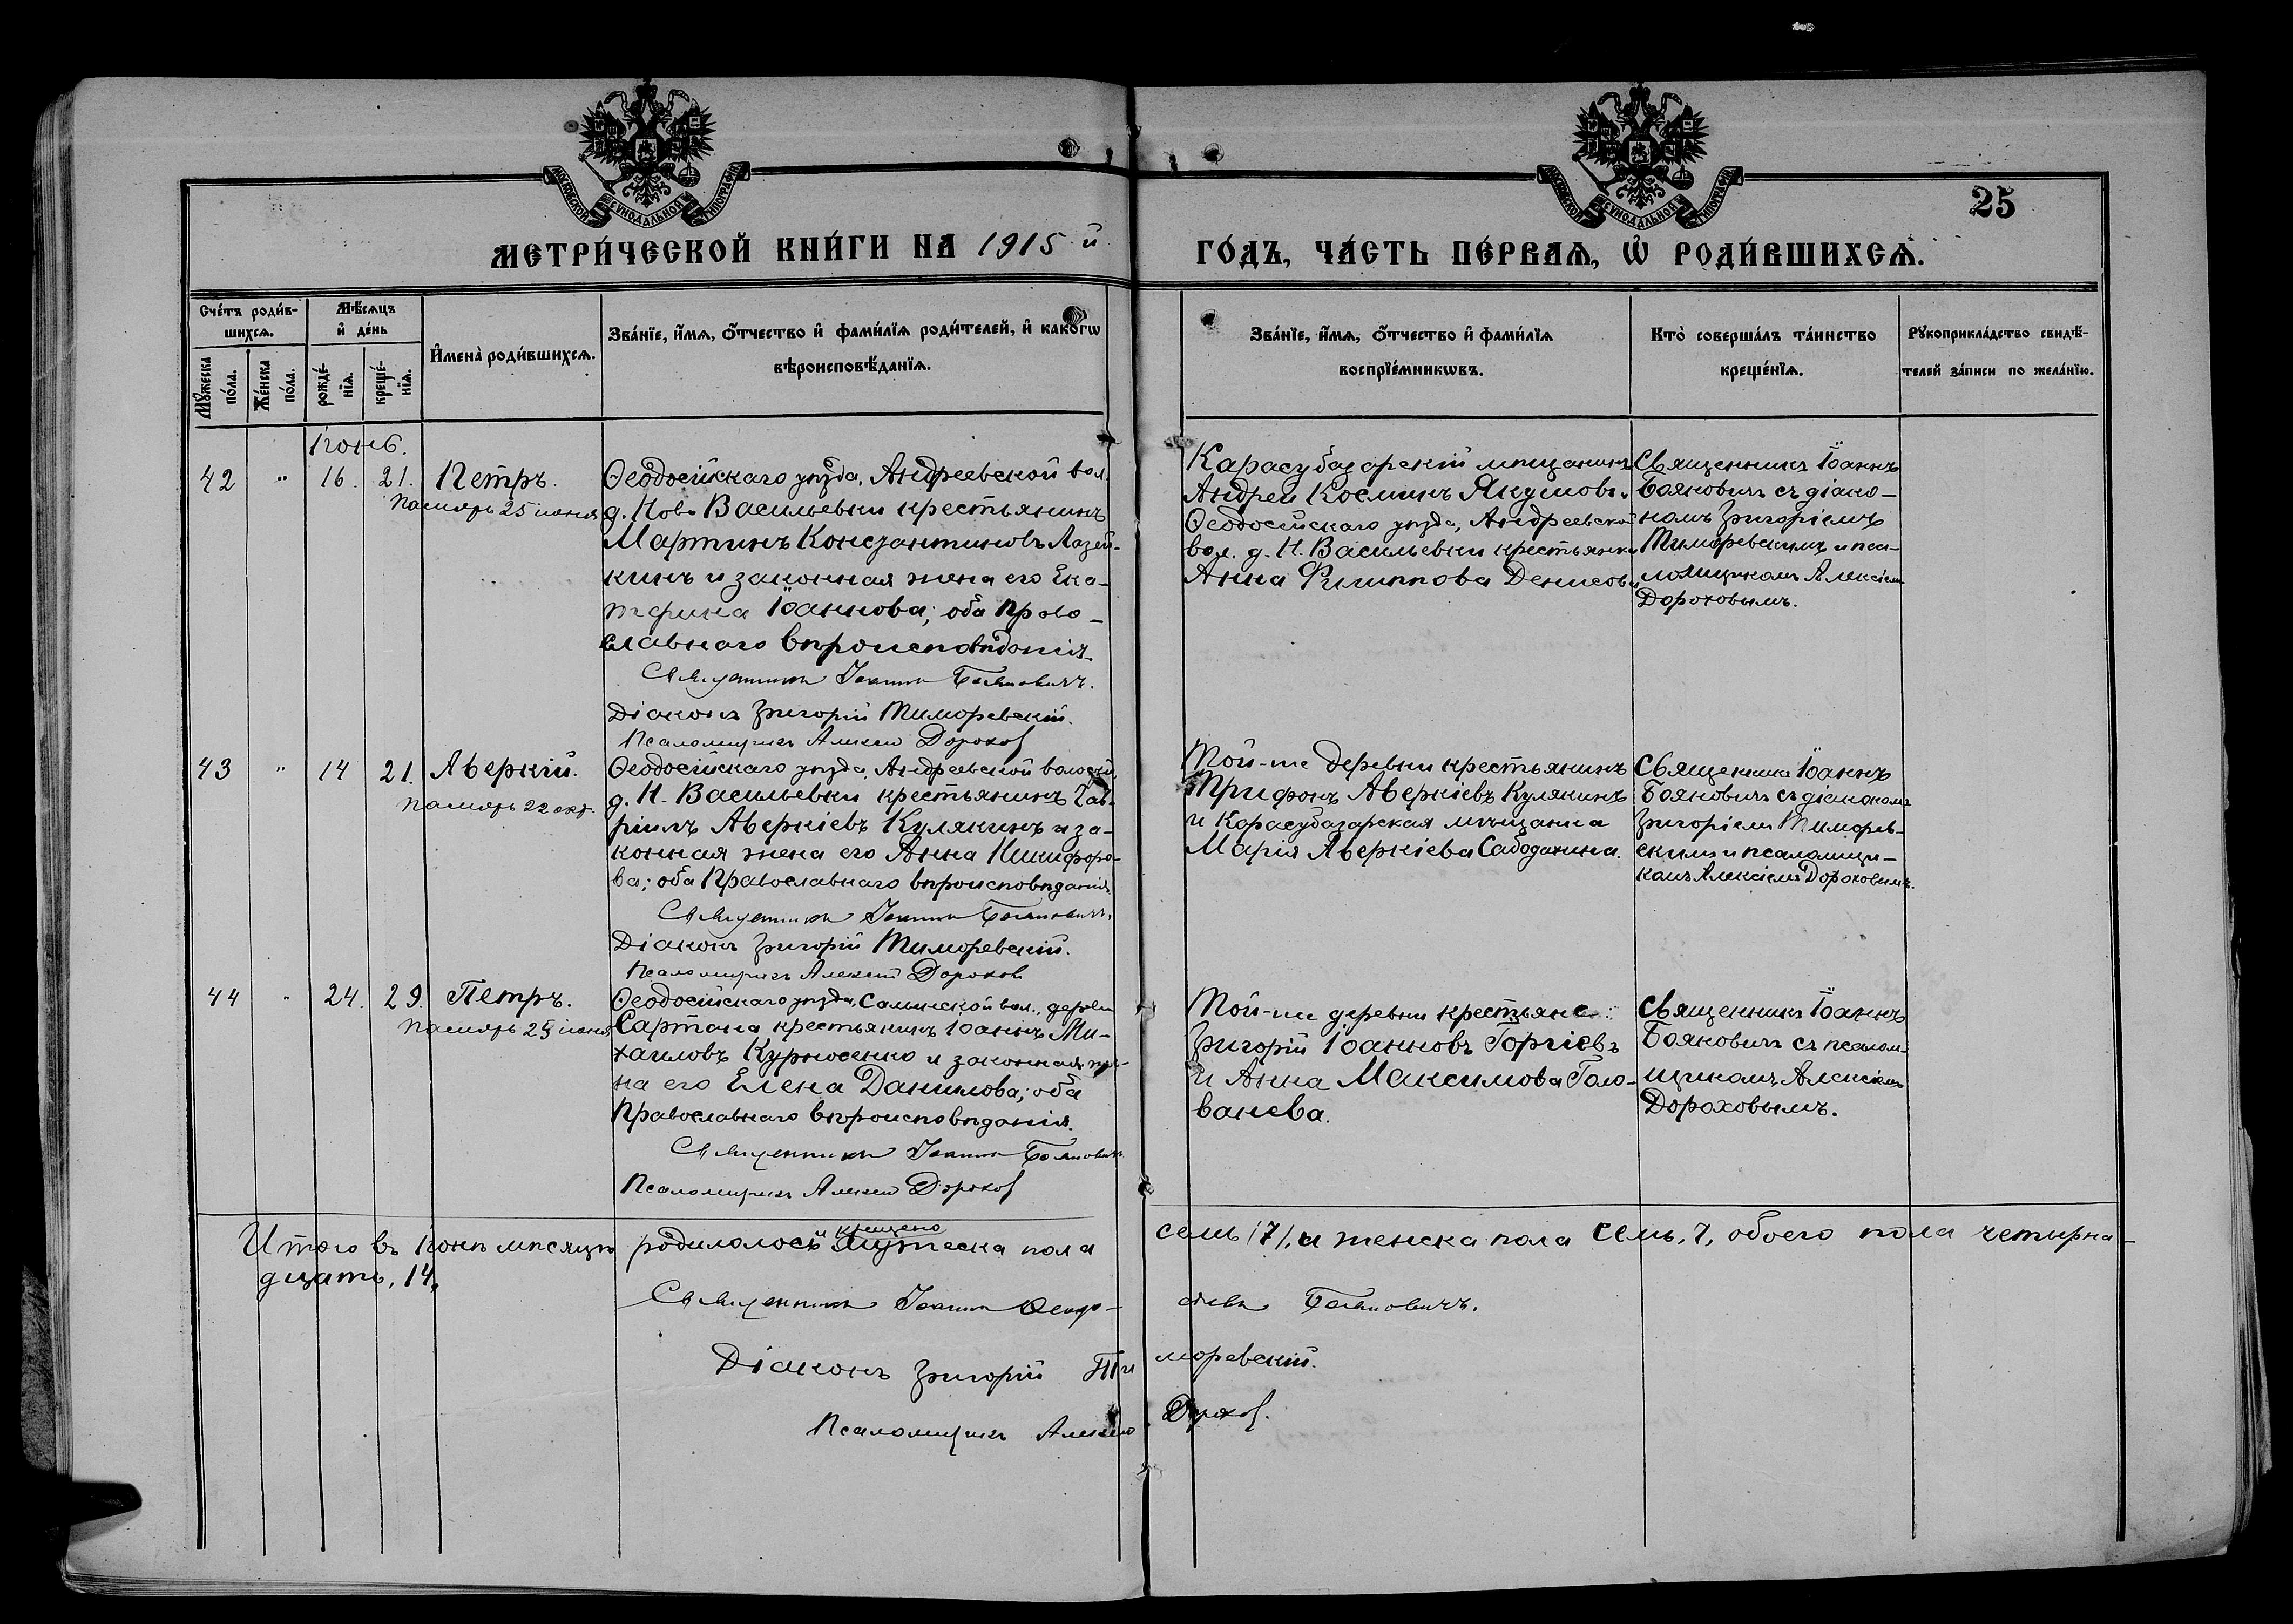 МОСКОВСКОЙ СѴНОДАЛЬНОЙ ТИПОГРАФІИ
МОСКОВСКОЙ СѴНОДАЛЬНОЙ ТИПОГРАФІИ
25
МЕТРИ́ЧЕСКОЙ КНИ́ГИ НА 1915 й
ГО́ДЪ, ЧА́СТЬ ПЕ́РВАѦ, Ѡ҆ РОДИ́ВШИХСѦ.
Сче́тъ роди́в-
шихсѧ.
Мѣ́сѧцъ
и҆ де́нь
Мꙋ́жеска по́ла.
Же́нска по́ла.
рожде́-нїѧ.
креще́-нїѧ.
И҆мена̀ роди́вшихсѧ.
Зва́нїе, и҆́мѧ, ѻ҆́тчество и҆ фами́лїѧ роди́телей, и҆ како́гѡ
вѣроисповѣ́данїѧ.
Зва́нїе, и҆́мѧ, ѻ҆́тчество и҆ фами́лїѧ
воспрїе́мникѡвъ.
Кто̀ соверша́лъ та́инство
креще́нїѧ.
Рꙋкоприкла́дство свидѣ́-
телей за́писи по жела́нїю.
Іюнь.
42 " 16. 21. Петръ.
Память 25 іюня
Ѳеодосійскаго уѣзда, Андреевской вол.
д. Ново Васильевки крестьянинъ
Мартинъ Константиновъ Лазей-
кинъ и законная жена его Ека-
терина Іоаннова; оба Право-
славнаго вѣроисповѣданія.
Священникъ Іоаннъ Бояновичъ.
Діаконъ Григорій Тиморевскій.
Псаломщикъ Алексей Дорохов
Карасубазарскій мѣщанинъ
Андрей Косминъ Якумовъ и
Ѳеодосійскаго уѣзда, Андреевской
вол. д. Н. Васильевки крестьянка
Анна Филиппова Денисова
Священникъ Іоаннъ
Бояновичъ съ діако-
номъ Григоріемъ
Тиморевскимъ и пса-
ломщикомъ Алексіемъ
Дороховымъ.
43 " 14 21. Аверкій.
Память 22 окт.
Ѳеодосійскаго уѣзда, Андреевской волости,
д. Н. Васильевки крестьянинъ Гав-
ріилъ Аверкіевъ Кулякинъ и за-
конная жена его Анна Никифоро-
ва; оба Православнаго вѣроисповѣданія.
Священникъ Іоаннъ Бояновичъ.
Діаконъ Григорій Тиморевскій.
Псаломщикъ Алексей Дорохов
Той-же деревни крестьянинъ
Трифонъ Аверкіевъ Кулякинъ
и Карасубазарская мѣщанка
Марія Аверкіева
Священникъ Іоаннъ
Бояновичъ съ діакономъ
Григоріемъ Тиморев-
скимъ и псаломщи-
комъ Алексіемъ Дороховымъ.
44 " 24. 29. Петръ.
Память 25 іюня
Ѳеодосійскаго уѣзда, Салынской вол., деревни
Сартана крестьянинъ Іоаннъ Ми-
хаиловъ Курносенко и законная же-
на его Елена Данилова; оба
Православнаго вѣроисповѣданія.
Священникъ Іоаннъ Бояновичъ
Псаломщикъ Алексей Дорохов
Той-же деревни крестьяне:
Григорій Іоанновъ Горгіевъ
и Анна Максимова Голо-
ванева.
Священникъ Іоаннъ
Бояновичъ съ псалом-
щикомъ Алексіемъ
Дороховымъ.
Итого въ Іюнѣ мѣсяцѣ родилолось и крещено мужеска пола семь /7/, и женска пола семь, 7, обоего пола четырна-
дцать, 14.
Священникъ Іоаннъ Бояновичъ.
Діаконъ Григорій Тиморевскій.
Псаломщикъ Алексей Дорохов.